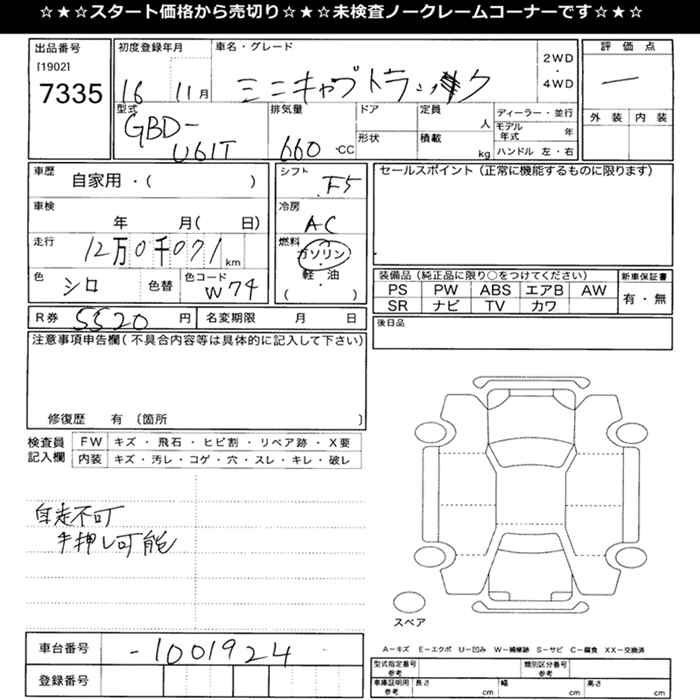 ☆★☆★スタート価格から売切り☆★☆★未検査ノークレームコーナーです☆★☆
出品番号
[1902]
7335
初度登録年月
16 11月
車名・グレード
ミニキャブトラック
2WD
・
4WD
評価点
—
外装 内装
型式
GBD-
U61T
排気量
660 .CC
ドア
形状
定員
人
積載
kg
ディーラー・並行
モデル
年式 年
ハンドル 左・右
車歴
自家用・( )
車検
年 月( 日)
走行
12万0千071 km
色
シロ 色替
色コード
W74
シフト
F5
冷房
AC
燃料
ガソリン
・
軽・油
( )
セールスポイント(正常に機能するものに限ります)
装備品(純正品に限り○をつけてください)
PS PW ABS エアB AW
SR ナビ TV カワ
新車保証書
有・無
R券 5520 円
名変期限 月 日
後日品
注意事項申告欄(不具合内容等は具体的に記入して下さい)
修復歴 有 〔箇所 〕
検査員
記入欄
FW キズ・飛石・ヒビ割・リペア跡・X要
内装 キズ・汚レ・コゲ・穴・スレ・キレ・破レ
自走不可
手押し可能
スペア
A-キズ E-エクボ U-凹み W-補修跡 S-サビ C-腐食 XX-交換済
車台番号 -1001924
登録番号
型式指定番号
参考
類別区分番号
参考
車庫証明用
参考
長さ cm 幅 cm 高さ cm